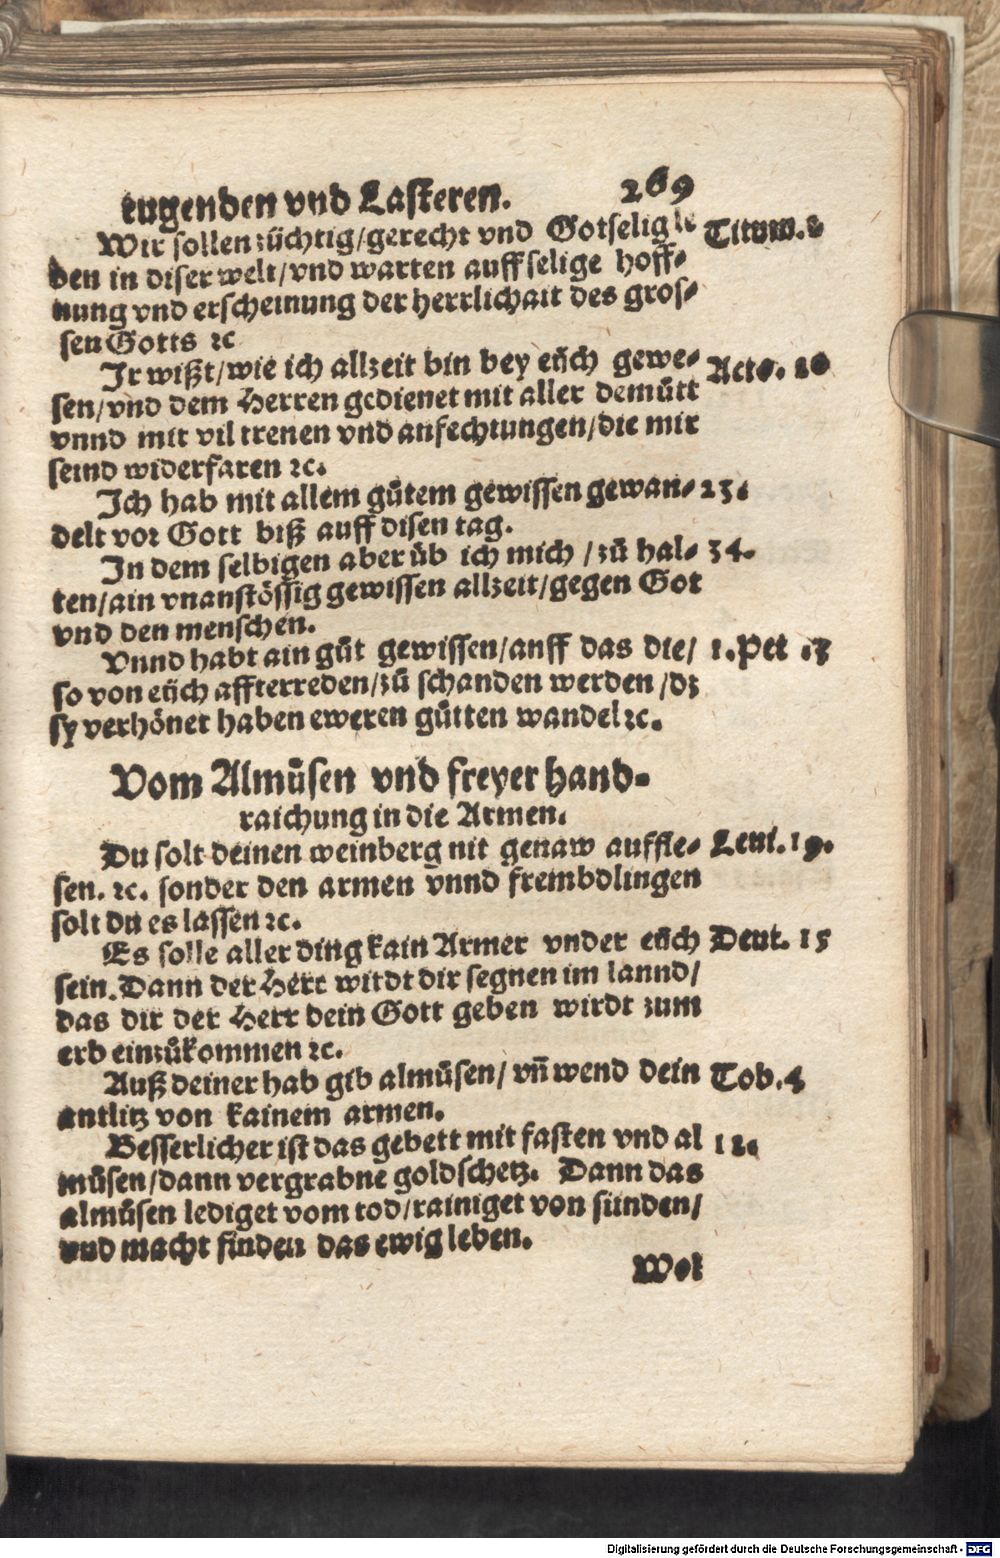 tugenden vnd Lasteren. 269
Wir sollen züchtig/gerecht vnd Gotselig le Titum. 2
ben in diser welt/vnd warten auff selige hoff⸗
nung vnd erscheinung der herrlichait des gros⸗
sen Gotts ꝛc
Jr wißt/wie ich allzeit bin bey eüch gewe⸗ Acto. 20
sen/vnd dem Herren gedienet mit aller demůtt
vnnd mit vil trenen vnd anfechtungen/die mir
seind widerfaren ꝛc.
Jch hab mit allem gůtem gewissen gewan⸗ 23.
delt vor Gott biß auff disen tag.
Jn dem selbigen aber üb ich mich /zů hal⸗ 34.
ten/ain vnanstössig gewissen allzeit/gegen Got
vnd den menschen.
Vnnd habt ain gůt gewissen/auff das die/ 1. Pet .3
so von eüch affterreden/zů schanden werden /dz
sy verhönet haben eweren gůtten wandel ꝛc.
Vom Almůsen vnd freyer hand⸗
raichung in die Armen.
Du solt deinen weinberg nit genaw auffle⸗ Leui. 19.
sen. ꝛc. sonder den armen vnnd frembdlingen
solt du es lassen ꝛc.
Es solle aller ding kain Armer vnder eüch Deut. 15
sein. Dann der Herr wirdt dir segnen im lannd/
das dir der Herr dein Gott geben wirdt zum
erb einzůkommen ꝛc.
Auß deiner hab gib almůsen/ vñ wend dein Tob. 4
antlitz von kainem armen.
Besserlicher ist das gebett mit fasten vnd al 12.
můsen/dann vergrabne goldschetz. Dann das
almůsen lediget vom tod/rainiget von sünden/
vnd macht finden das ewig leben.
Wol
Digitalisierung gefördert durch die Deutsche Forschungsgemeinschaft - DFG